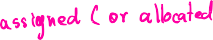 assigned ( or allocated